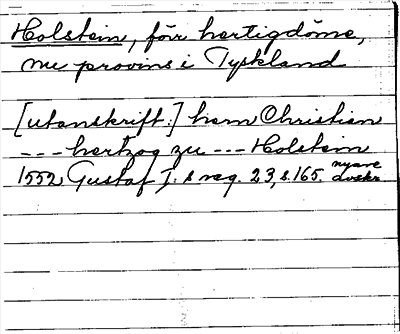 Holstein, förr hertigdöme,
nu provins i Tyskland
[utanskrift:] hern Christian
--- hertzog zu --- Holstein
1552 Gustaf I:s reg. 23, s. 165. nyare avskr